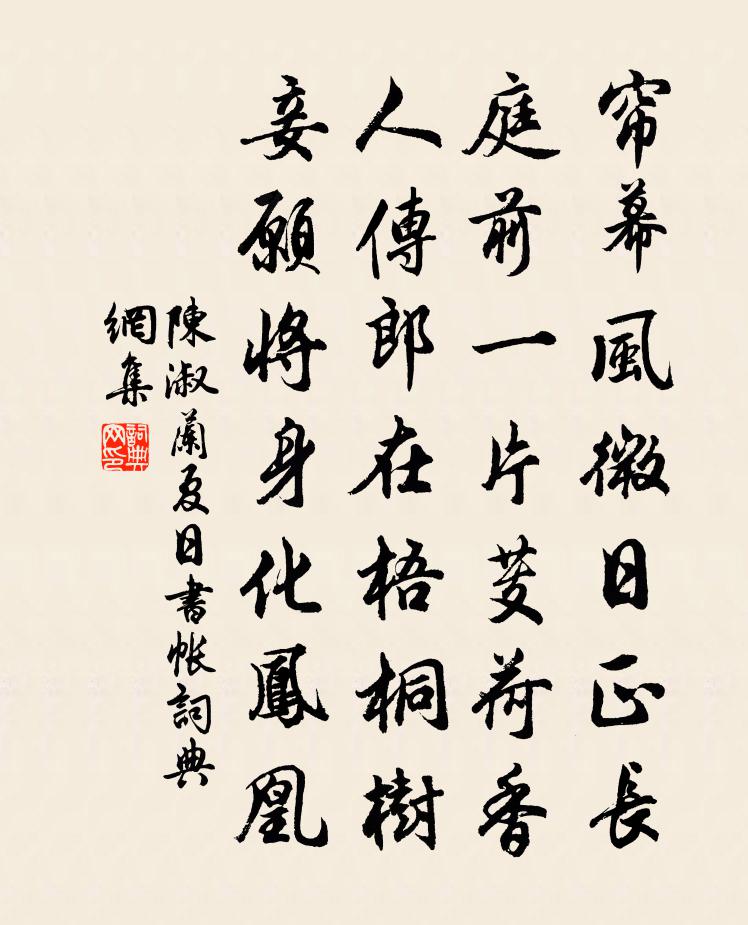 帘幕風微日正長
庭前一片芰荷香
人傳郎在梧桐樹
妾願將身化鳳凰
陳淑蘭夏日書帳詞典
網集
詞典
网印